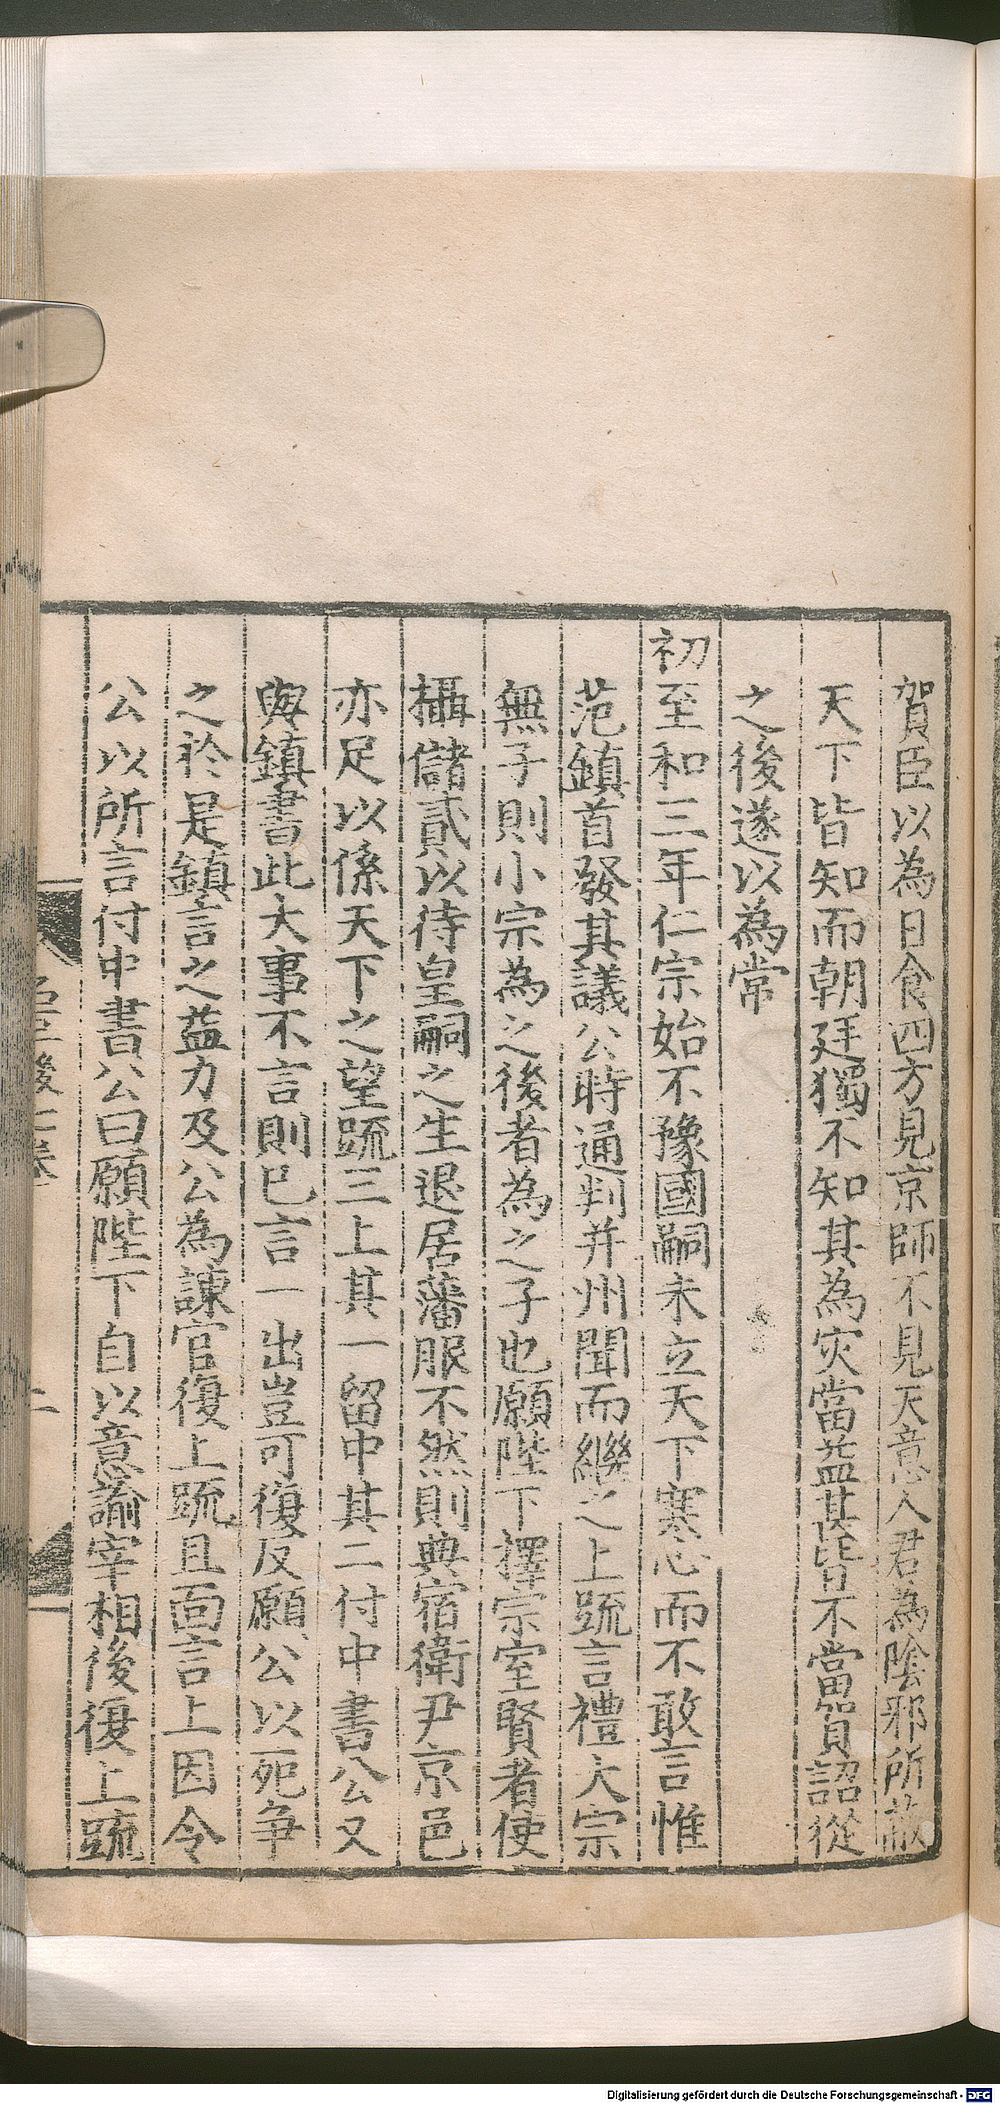 賀臣以為日食四方見京師不見天意人君為陰邪所蔽
天下皆知而朝廷獨不知其為灾當益甚皆不當賀詔從
之後遂以為常
初至和三年仁宗始不豫國嗣未立天下寒心而不敢言惟
范鎮首發其議公時通判并州聞而繼之上䟽言禮大宗
無子則小宗為之後者為之子也願陛下擇宗室賢者使
攝儲貳以待皇嗣之生退居藩服不然則典宿衛尹京邑
亦足以係天下之望䟽三上其一留中其二付中書公又
與鎮書此大事不言則已言一出豈可復反願公以死争
之於是鎮言之益力及公為諫官復上䟽且面言上因令
公以所言付中書公曰願陛下自以意諭宰相後復上䟽
名臣後一卷
二
Digitalisierung gefördert durch die Deutsche Forschungsgemeinschaft - DFG